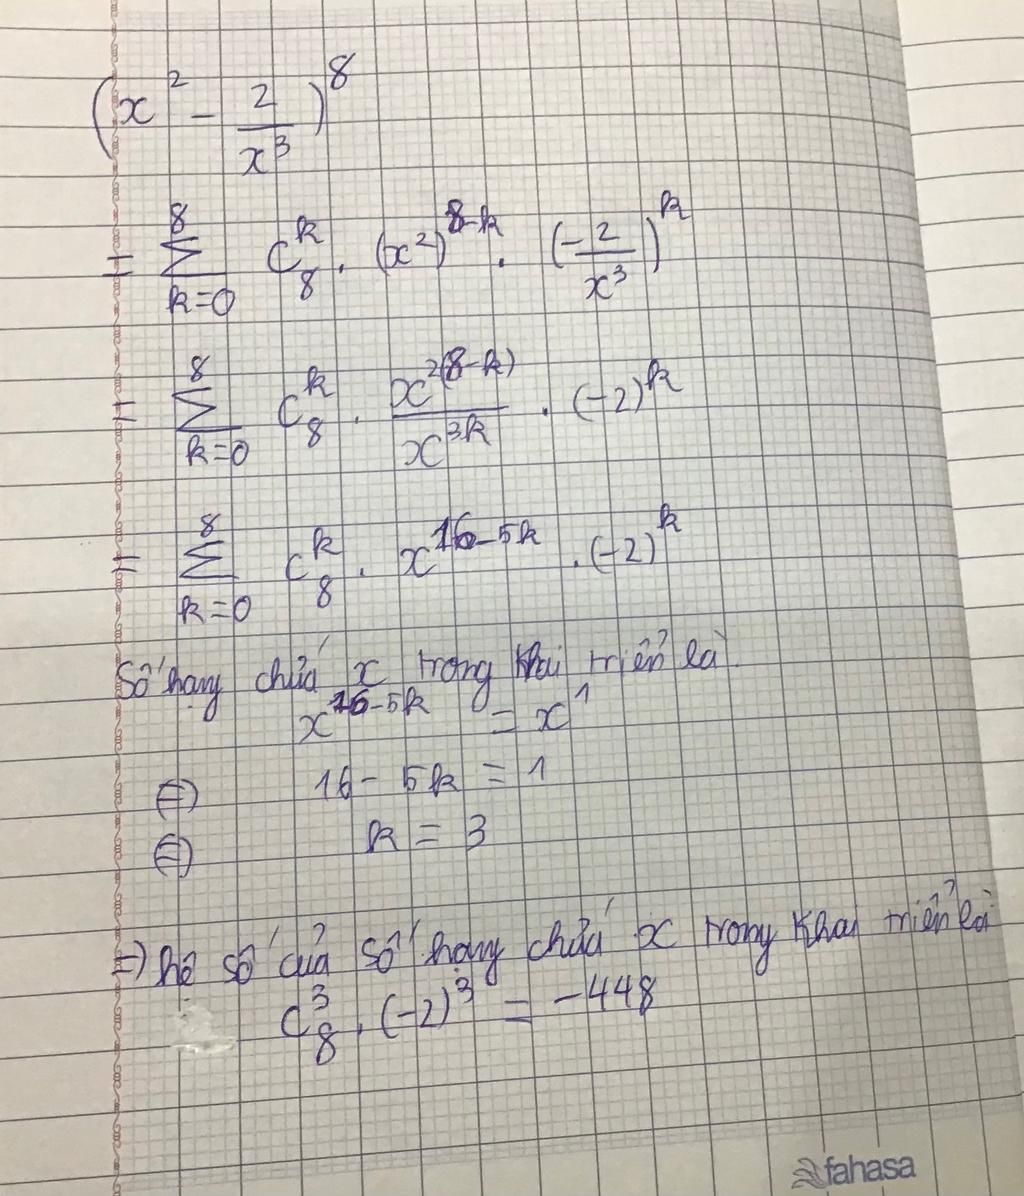 (x² - 2/x³)⁸
= Σ_{k=0}^{8} C_8^k . (x²)^{8-k} . (-2/x³)^k
= Σ_{k=0}^{8} C_8^k . x^{2(8-k)}/x^{3k} . (-2)^k
= Σ_{k=0}^{8} C_8^k . x^{16-5k} . (-2)^k
Số hạng chứa x trong khai triển là
x^{16-5k} = x^1
⇔ 16 - 5k = 1
⇔ k = 3
=) hệ số của số hạng chứa x trong khai triển là
C_8^3 . (-2)^3 = -448
fahasa